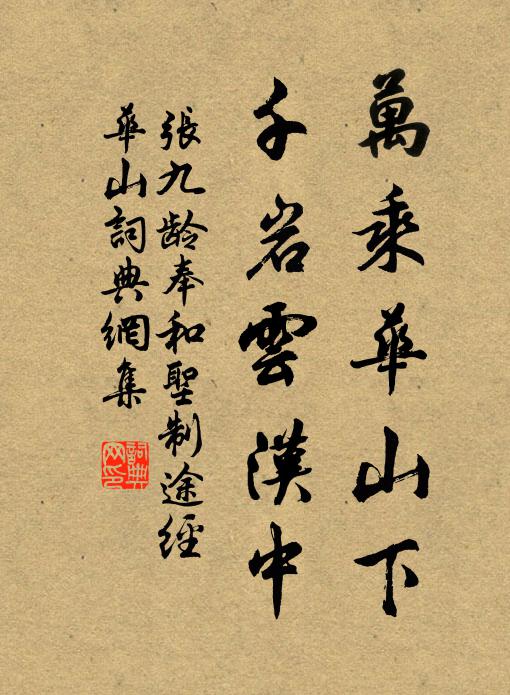 萬乘華山下
千岩雲漢中
張九龄奉和聖制途經
華山詞典網集
詞典网印